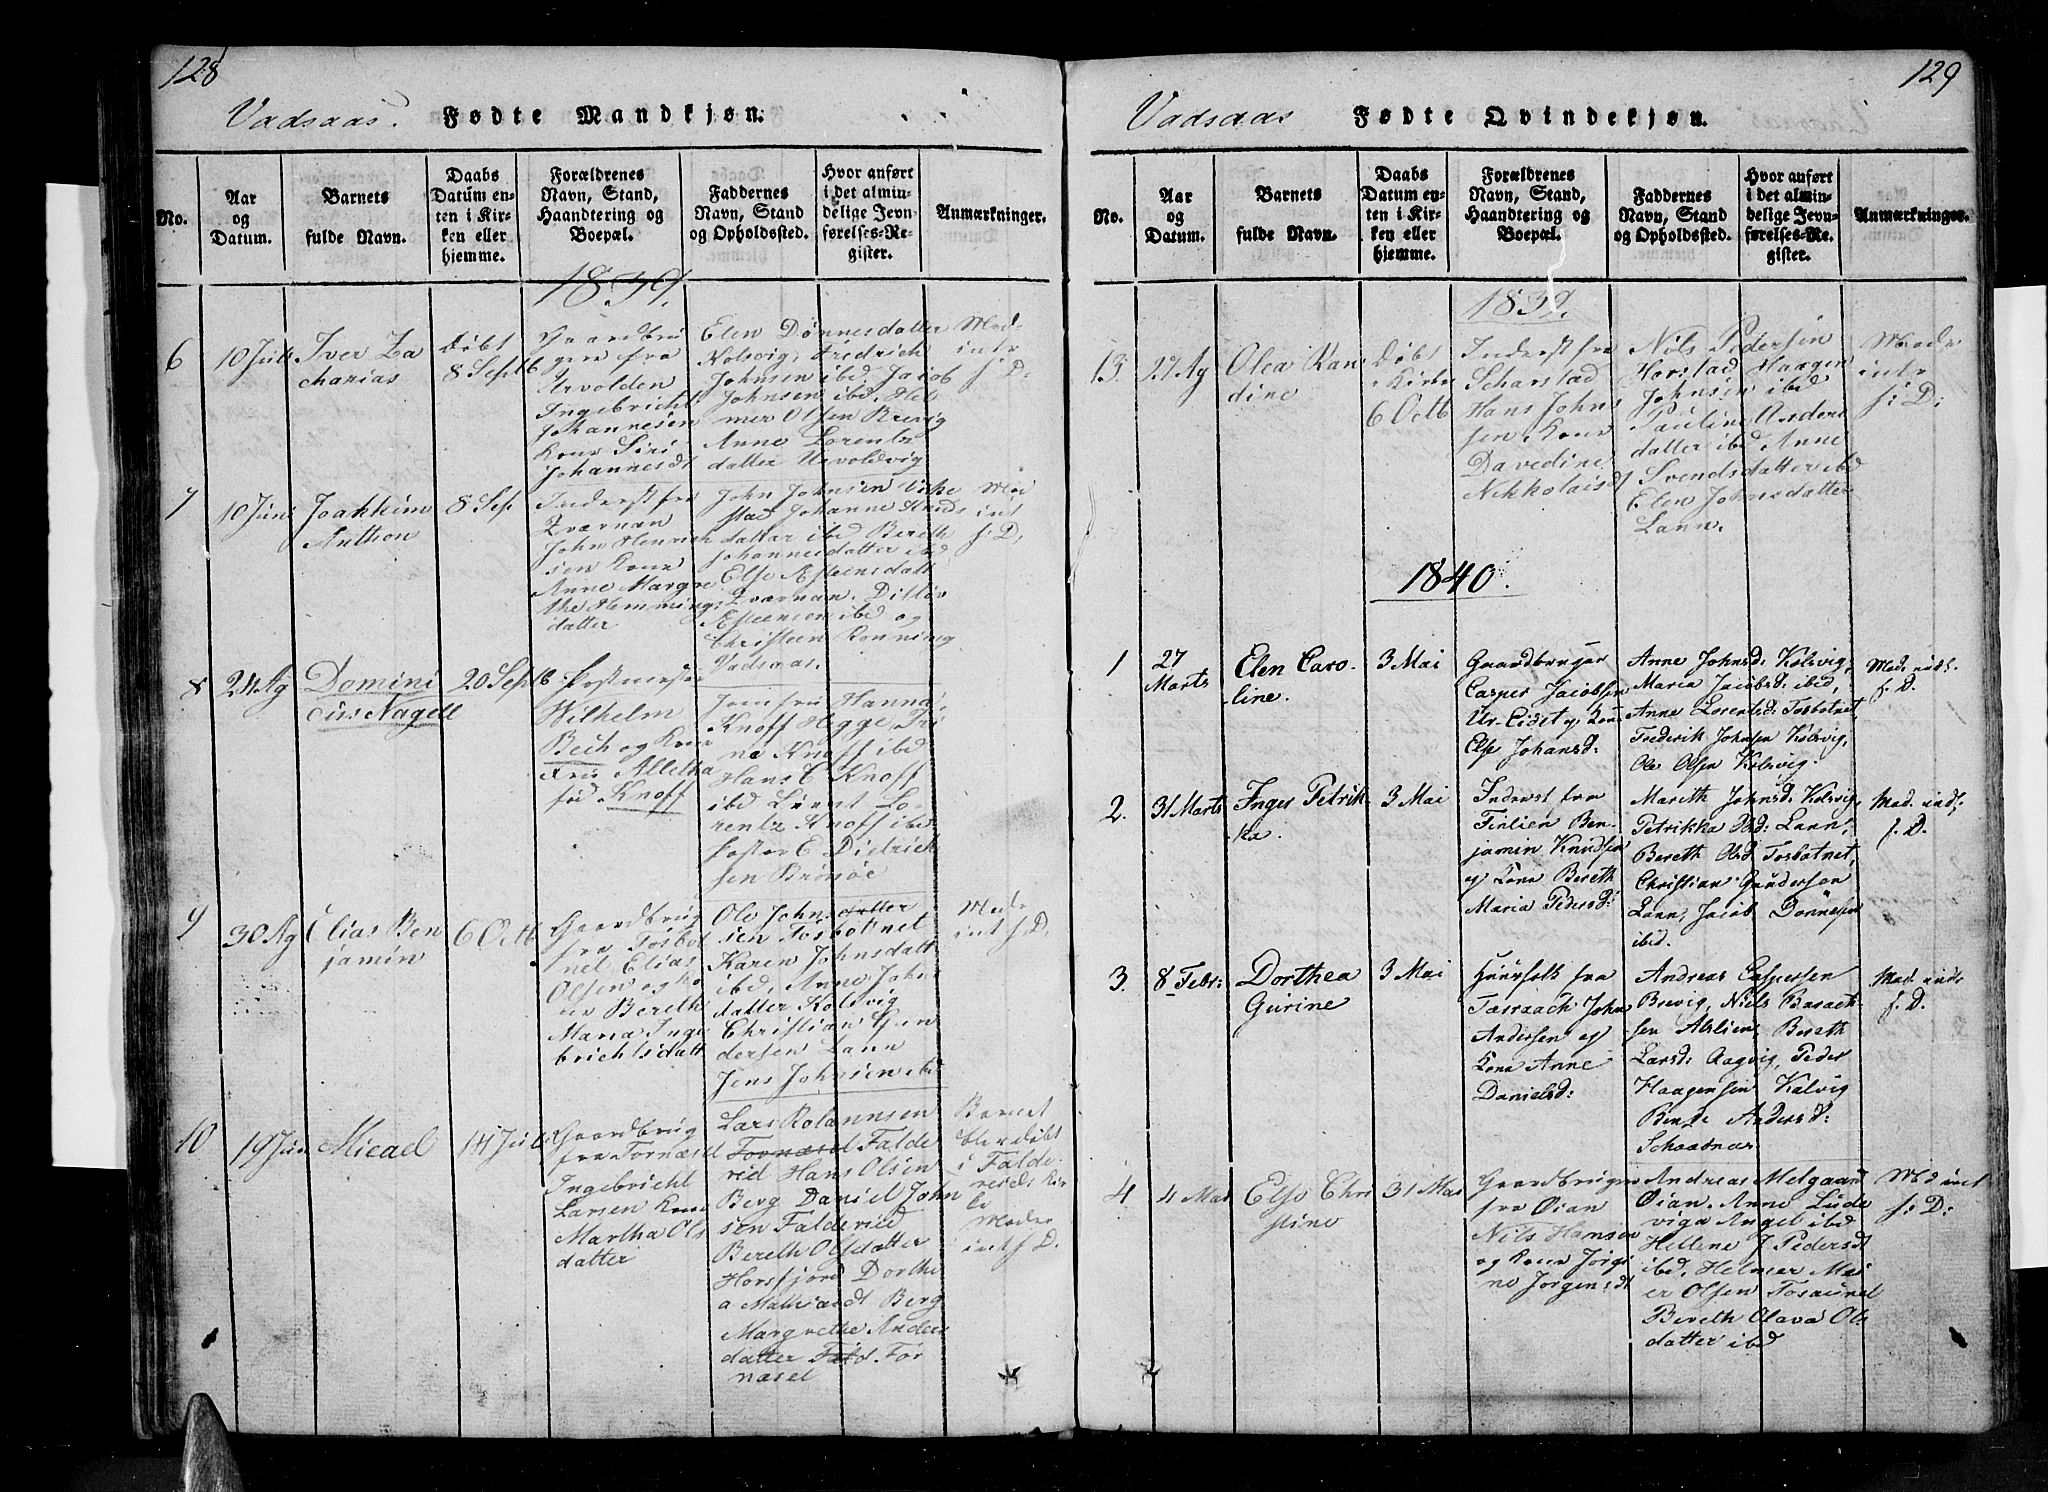 128
Vadsaas. Fødte Mandkjøn.
No.
Aar
og
Datum.
Barnets
fulde Navn.
Daabs
Datum en-
ten i Kir-
ken eller
hjemme.
Forældrenes
Navn, Stand,
Haandtering og
Boepæl.
Faddernes
Navn, Stand
og Opholdssted.
Hvor anført
i det almin-
delige Jevn-
førelses-Re-
gister.
Anmærkninger.
1839.
6
10 Juli
Iver Za
charias
Døbt
8 Septb
Gaardbru
gere fra
Urvolden
Ingebricht
Johannesen
Kone Siri
Johannesdt
Elen Dønnesdatter
Kolsvig, Fredrich
Johnsen ibd Jacob
Johnsen ibd. Hel
mer Olsen Brevig
Anne Lorentz
datter Urvoldvig
Mod-
intr
f: D:
7
10 Juni
Joakkim
Anthon
8 Sep
Inderst fra
Qværnan
John Henrich
sen Kone
Anne Margre
the Hemmings
datter
John Johnsen Viske
stad Johanne Knuds
datter ibd Bereth
Johannesdatter ibd
Else Esteensdatt
Qværnan. Ditløv
Esteensen ibd og
Christeen Rønning
Vadsaas.
Mod
int
f: D:
8
24 Ag
Domini
cus Nagell
20 Septb
Postmester
Wilhelm
Bech og Kone
Fru Alletha
fød. Knoff
Jomfru Hanna
Knoff Hegge Tri
ne Knoff ibd
Hans C Knoff
ibd Lieut Lo-
rentz Knoff ibd
Foster C Didrich
sen Brønøe
9
30 Ag
Elias Ben
jamin
6 Octb
Gaardbrug
fra Tosbot
net Elias
Olsen og ko
ne Bereth
Maria Inge
brichtsdatt
Ole Johnsdatter
sen Tosbotnet
Karen Johnsdatt
ibd, Anne John
datter Kolsvig
Christian Gun
dersen Lann
Jens Johnsen ibd
Mode
int f: D.
10
19 Jun
Micael
14 Juli
Gaardbrug
fra Tornæsel
Ingebricht
Larsen Kone
Martha Ols
datter
Lars Rolannsen
Tornæsel Falde
rid Hans Olsen
Berg Daniel John
sen Falderiid
Bereth Olsdatter
Horsfjord Dorthe
a Mathiasdt Berg
Margrethe Anders
datter Fald. Tor
næsel
Barnet
blev døbt
i Falde-
reids Kir
ke
Moder
int f: D.
129
Vadsaas Fødte Qvindekjøn.
No.
Aar
og
Datum.
Barnets
fulde Navn.
Daabs
Datum en-
ten i Kir-
ken eller
hjemme.
Forældrenes
Navn, Stand,
Haandtering og
Boepæl.
Faddernes
Navn, Stand
og Opholdssted.
Hvor anført
i det almin-
delige Jevn-
førelses-Re-
gister.
Anmærkninger.
1839.
13.
27 Ag
Olea Kan
dine
Døbt
i Kirke
6 Octb
Inderst fra
Scharstad
Hans Johns
sen. Kone
Davedine
Nikkolaisd
Nils Pedersen
Horstad Haagen
Johnsen ibd
Pauline Anders
datter ibd Anne
Svendsdatter ibd
Elen Johnsdatter
Lann.
Mode
intr
f: D:
1840.
1
27
Marts
Elen Caro-
line.
3 Mai
Gaardbruger
Casper Jacobsen
Ur-Eidet og Kone
Else Johansd:
Anne Johnsd: Kolsvig,
Maria Jacobsd: ibid,
Anne Lorentsd: Tosbotnet,
Frederik Johnsen Kolsvig,
Ole Olsen Kolsvig.
Mod. inds.
f. D.
2.
31 Marts
Inger Petrik-
ka.
3 Mai
Inderst fra
Finlien Ben-
jamin Knudsen
og Kone Bereth
Maria Pedersd:
Mareth Johnsd: Kolsvig,
Petrikka Pd: Lann,
Bereth Olsd Tosbotnet,
Christian Gundersen
Lann, Jacob Dønnesen
ibid.
Mod. inds.
f. D.
3.
8 Febr:
Dorthea
Gurine
3 Mai
Huusfolk fra
Tasraach John
Andersen og
Kone Anne
Danielsd:
Andreas Caspersen
Brevig, Niels Basach-
sen Alslien, Bereth
Larsd: Aagvig, Peder
Haagensen Kolvig
Bende Andersd:
Schaatnas
Mod. inds
f. D.
4
4 Mai
Else Chri
stine
31 Mai
Gaardbruger
fra Øian
Nils Hansen
og kone Jørgi
ne Jørgensdt
Andreas Melgaard
Øian. Anne Lude
viga Angel ibd
Hellene J Pedersdt
ibd. Helmer Mei
er Olsen Tosaunet
Bereth Olava Ols
datter ibd
Mod int
f: D: